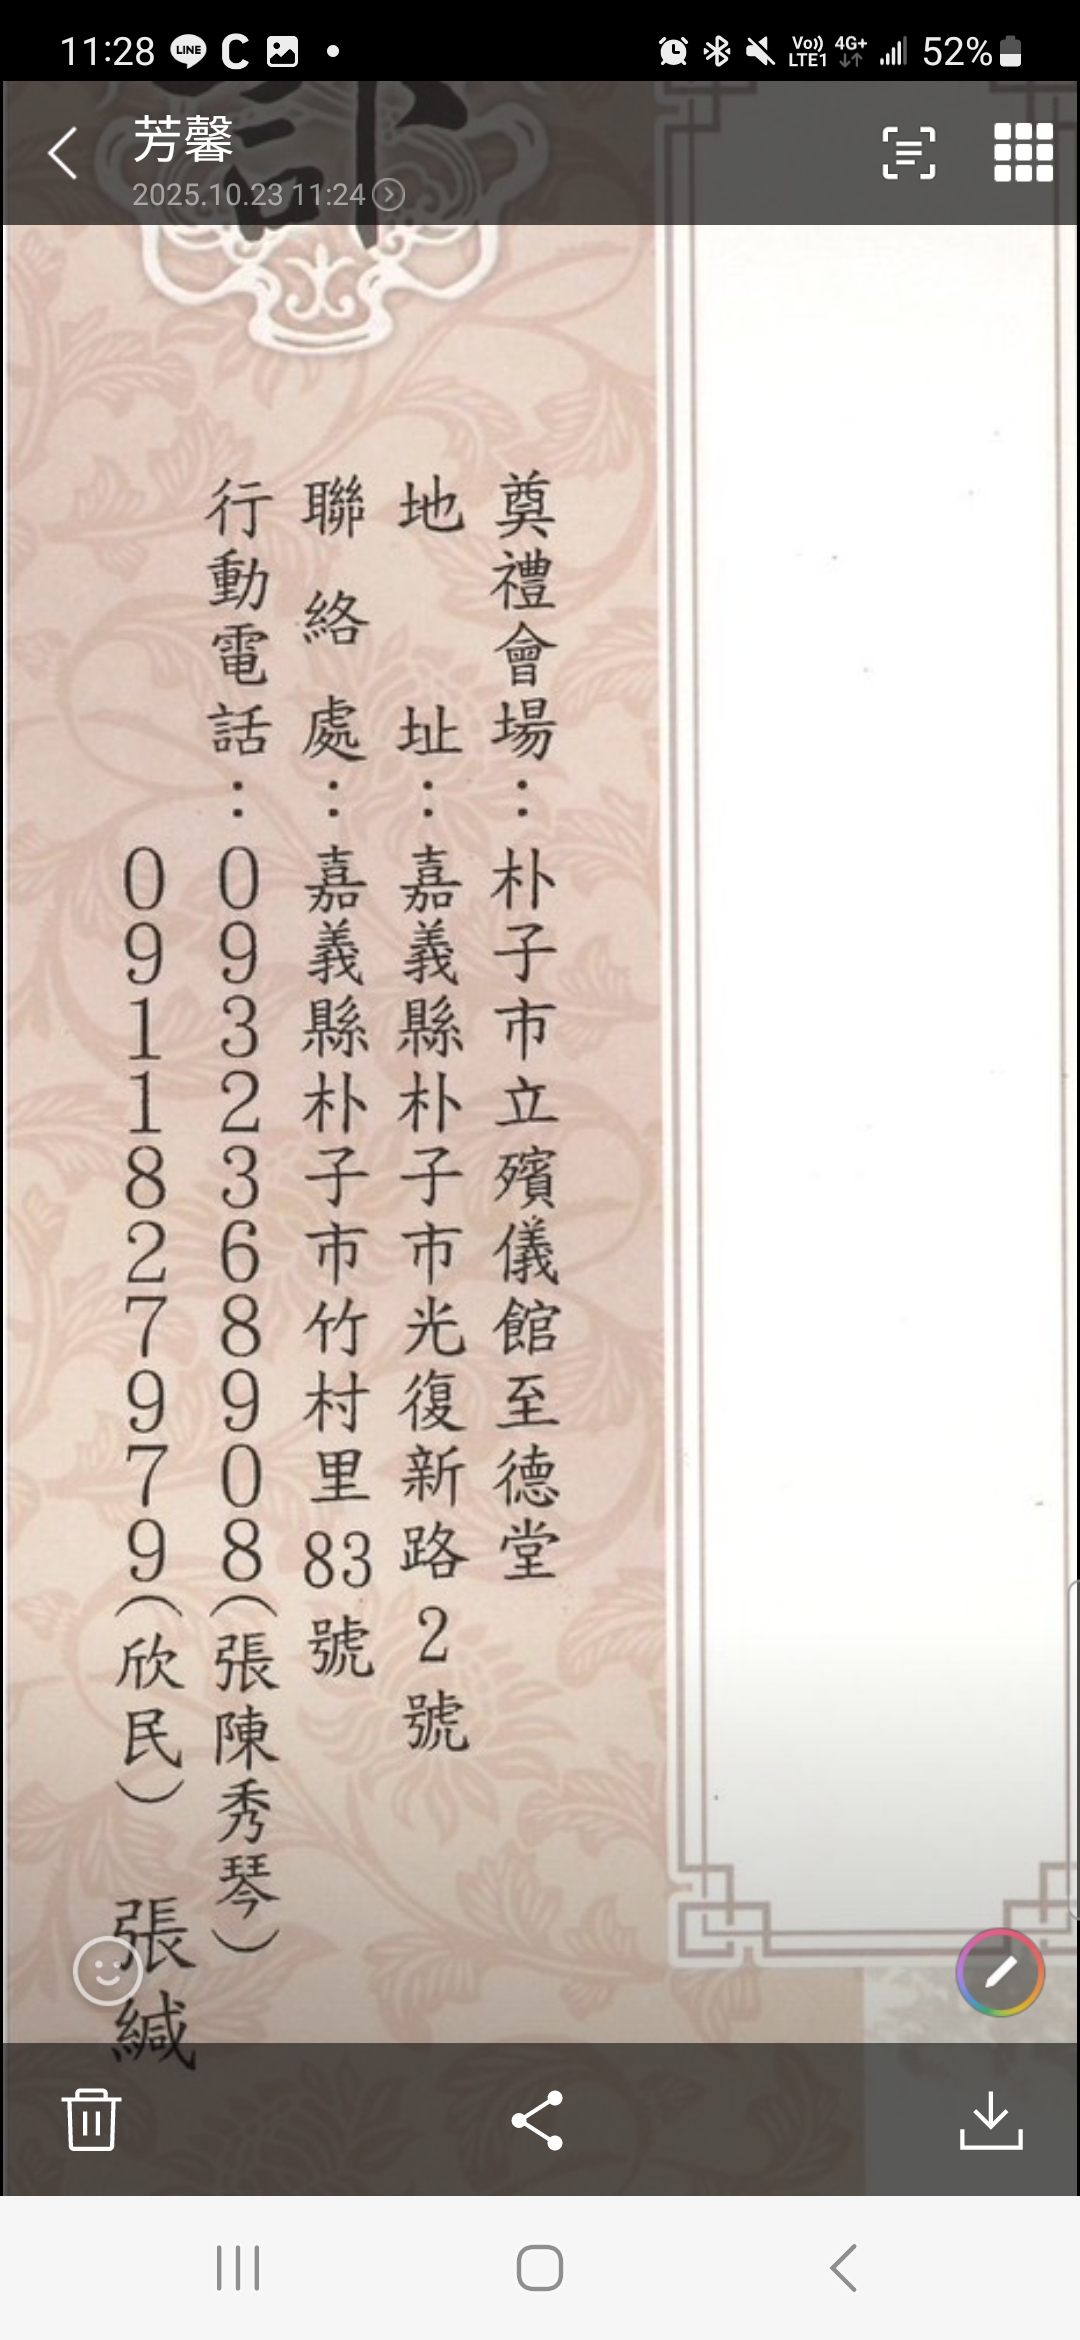 11:28 LINE C Vo)) LTE1 4G+ 52%
芳馨
2025.10.23 11:24
訃
奠禮會場：朴子市立殯儀館至德堂
地址：嘉義縣朴子市光復新路2號
聯絡處：嘉義縣朴子市竹村里83號
行動電話：0932368908（張陳秀琴）
0911827979（欣民）
張緘